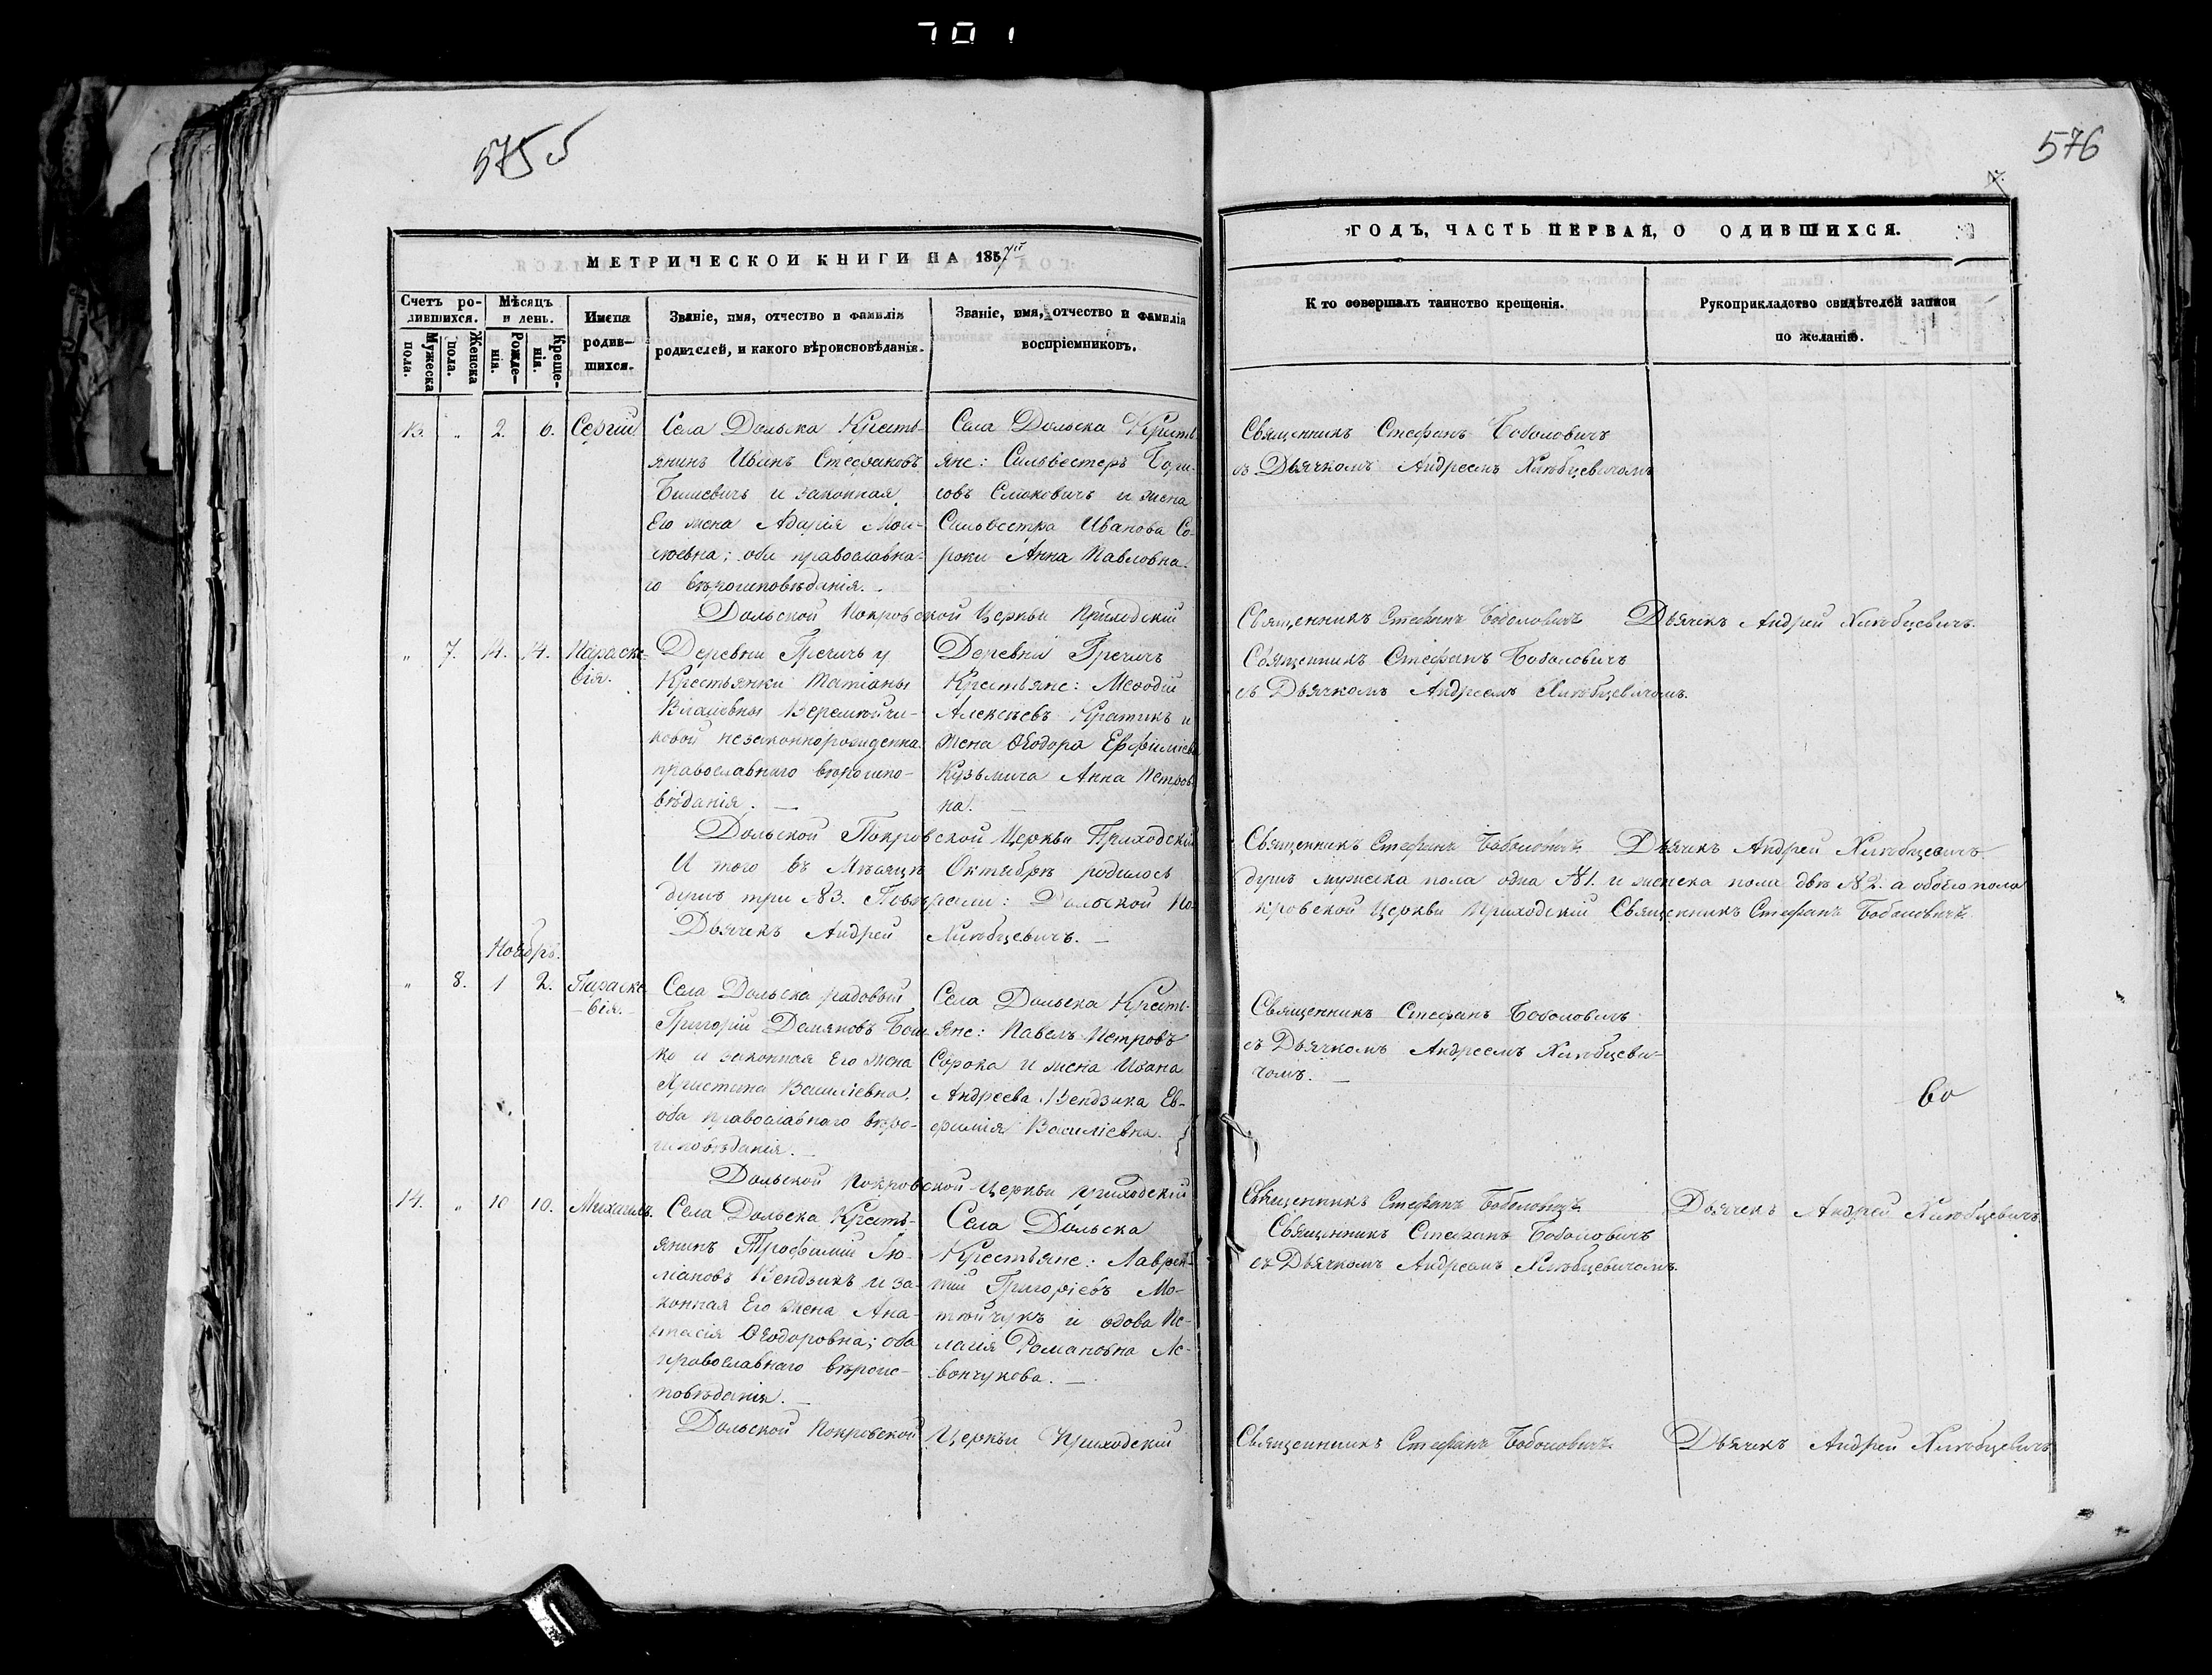 701
575
576
МЕТРИЧЕСКОЙ КНИГИ НА 1857й
ГОДЪ, ЧАСТЬ ПЕРВАЯ, О ОДИВШИХСЯ.
Счетъ ро-
дившихся.
Мужеска
пола.
Женска
пола.
Мѣсяцъ
и день.
Рожде-
нія.
Креще-
нія.
Имена
родив-
шихся.
Званіе, имя, отчество и фамилія
родителей, и какого вѣроисповѣданія.
Званіе, имя, отчество и фамилія
воспріемниковъ.
Кто совершалъ таинство крещенія.
Рукоприкладство свидѣтелей записи
по желанію.
13. „ 2. 6. Сергій.
Села Дольска Кресть-
янинъ Иванъ Стефановъ
и законная
Его жена Марія Мои-
сѣевна; оба православна-
го вѣроисповѣданія.
Села Дольска Кресть-
яне: Сильвестеръ Бори-
совъ и жена
Сильвестра Иванова Со-
роки Анна Павловна.
Священникъ Стефанъ Боболовичъ
съ Дьячкомъ Андреемъ Хлѣбцевичомъ
Дольской Покровской Церкви Приходскій Священникъ Стефанъ Боболовичъ Дьячекъ Андрей Хлѣбцевичъ.
„ 7. 14. 14. Параске-
вія.
Деревни Гречичъ у
Крестьянки Татіаны
незаконнорожденна
православнаго вѣроиспо-
вѣданія. —
Деревни Гречичъ
Крестьяне: Меѳодій
Алексѣевъ Кратикъ и
Жена Ѳеодора
Кузьмича Анна Петров-
на. —
Священникъ Стефанъ Боболовичъ
съ Дьячкомъ Андреемъ Хлѣбцевичомъ.
Дольской Покровской Церкви Приходскій Священникъ Стефанъ Боболовичъ Дьячекъ Андрей Хлѣбцевичъ.
И того въ Мѣсяцѣ Октябрѣ родилось душъ мужеска пола одна №1. и женска пола двѣ №2. а обоего пола
душъ три №3. Повѣряли: Дольской По-кровской Церкви Приходскій Священникъ Стефанъ Боболовичъ
Дьячекъ Андрей Хлѣбцевичъ. —
Ноябрь.
„ 8. 1 2. Параске-
-вія.-
Села Дольска рядовой
Григорій Демяновъ Бош-
ко и законная Его жена
Христина Василіевна,
оба православнаго вѣро-
исповѣданія. —
Села Дольска Кресть-
яне: Павелъ Петровъ
Сорока и жена Ивана
Андреева Вендзика Ев-
фимія Василіевна.
Священникъ Стефанъ Боболовичъ
съ Дьячкомъ Андреемъ Хлѣбцеви-
чомъ. —
Дольской Покровской Церкви Приходскій Священникъ Стефанъ Боболовичъ Дьячекъ Андрей Хлѣбцевичъ.
14. „ 10 10. Михаилъ.
Села Дольска Кресть-
янинъ Трофимій Лю-
ліановъ Вендзикъ и за-
конная Его жена Ана-
стасія Ѳеодоровна; оба
православнаго вѣроис-
повѣданія. —
Села Дольска
Крестьяне: Лаврен-
тій Григоріевъ Мо-
тѣйчукъ и вдова Пе-
лагія Романовна Ле-
вончукова. —
Священникъ Стефанъ Боболовичъ
съ Дьячкомъ Андреемъ Хлѣбцевичомъ.
Дольской Покровской Церкви Приходскій Священникъ Стефанъ Боболовичъ Дьячекъ Андрей Хлѣбцевичъ